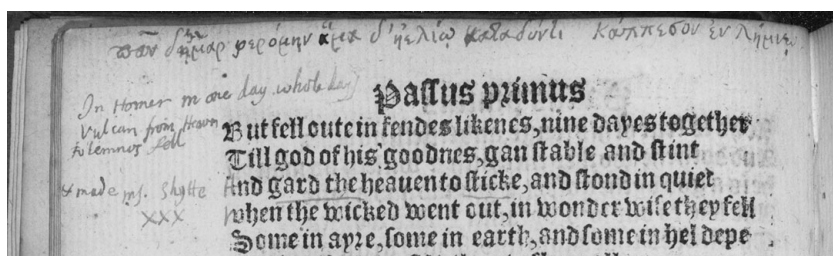 πᾶν δ' ἦμαρ φερόμην ἅμα δ' ἠελίῳ καταδύντι Κάππεσον ἐν Λήμνῳ
In Homer in one day whole day
Vulcan from Heavn
to lemnos fell
& made
XXX
Passus primus
But fell oute in fendes likenes, nine dayes together
Till god of his goodnes, gan stable and stint
And gard the heauen to sticke, and stond in quiet
when the wicked went out, in wonder wise they fell
Some in ayre, some in earth, and some in hel depe